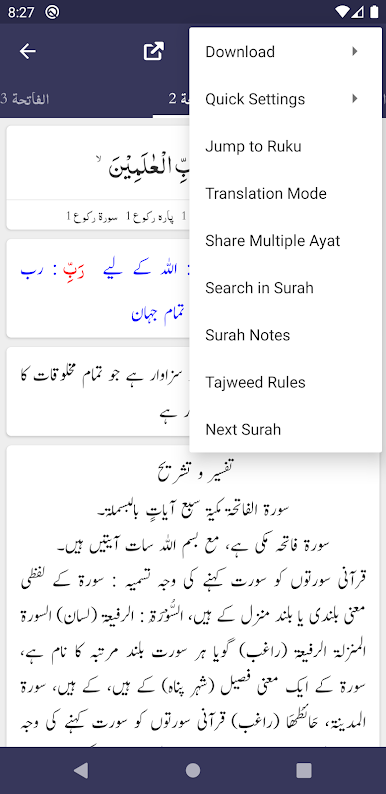 8:27
الفاتحة 3
ة 2
Download
Quick Settings
Jump to Ruku
Translation Mode
Share Multiple Ayat
Search in Surah
Surah Notes
Tajweed Rules
Next Surah
بِّ الْعٰلَمِیْنَ ۙ
پارہ رکوع 1 سورۃ رکوع 1
: اللہ کے لیے رَبِّ : رب
تمام جہان
سزاوار ہے جو تمام مخلوقات کا
ر ہے
تفسیر و تشریح
سورۃ الفاتحۃ مکیۃ سبع آیاتٍ بالبسملۃ۔
سورۃ فاتحہ مکی ہے، مع بسم اللہ سات آیتیں ہیں۔
قرآنی سورتوں کو سورت کہنے کی وجہ تسمیہ : سورۃ کے لفظی
معنی بلندی یا بلند منزل کے ہیں، السُّوْرَۃِ : الرفیعۃ (لسان) السورۃ
المنزلۃ الرفیعۃ (راغب) گویا ہر سورت بلند مرتبہ کا نام ہے،
سورۃ کے ایک معنی فصیل (شہر پناہ) کے ہیں، کے ہیں، سورۃ
المدینۃ، حَائطُھَا (راغب) قرآنی سورتوں کو سورت کہنے کی وجہ